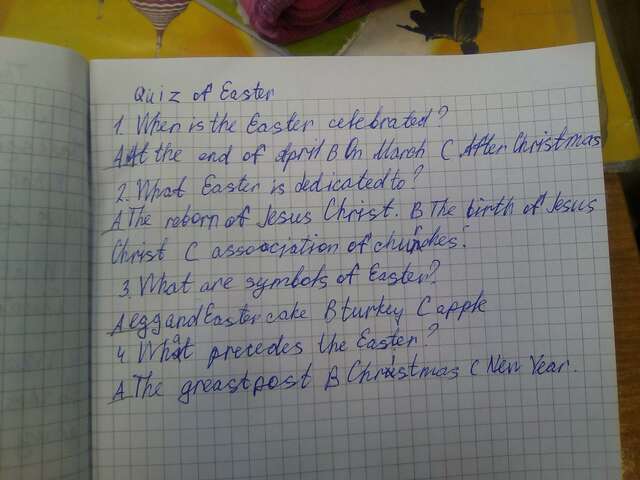 Quiz of Easter
1. When is the Easter celebrated?
A At the end of April B On March C After Christmas
2. What Easter is dedicated to?
A The reborn of Jesus Christ. B The birth of Jesus
Christ C assosciation of churches.
3. What are symbols of Easter?
A egg and Easter cake B turkey C apple
4. What precedes the Easter?
A The greast post B Christmas C New Year.